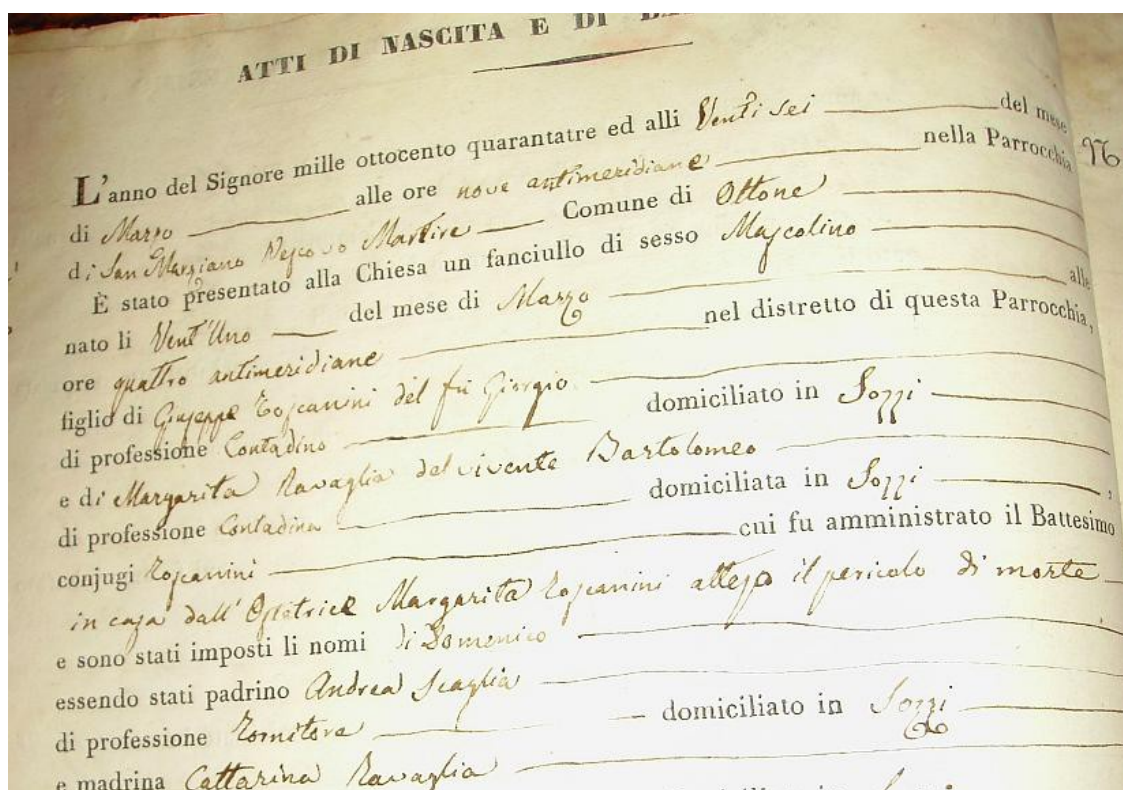 ATTI DI NASCITA E DI
L'anno del Signore mille ottocento quarantatre ed alli Venti sei del mese
di Marzo alle ore nove antimeridiane nella Parrocchia 96
di San Marziano Vescovo Martire Comune di Ottone
È stato presentato alla Chiesa un fanciullo di sesso Mascolino
nato li Vent'Uno del mese di Marzo alle
ore quattro antimeridiane nel distretto di questa Parrocchia,
figlio di Giuseppe Toscanini del fù Giorgio
di professione Contadino domiciliato in Sozzi
e di Margarita Ravaglia del vivente Bartolomeo
di professione Contadina domiciliata in Sozzi ,
conjugi Toscanini cui fu amministrato il Battesimo
in casa dall'Ostetrice Margarita Toscanini atteso il pericolo di morte
e sono stati imposti li nomi di Domenico
essendo stati padrino Andrea Scaglia
di professione Tornitore domiciliato in Sozzi
e madrina Cattarina Ravaglia